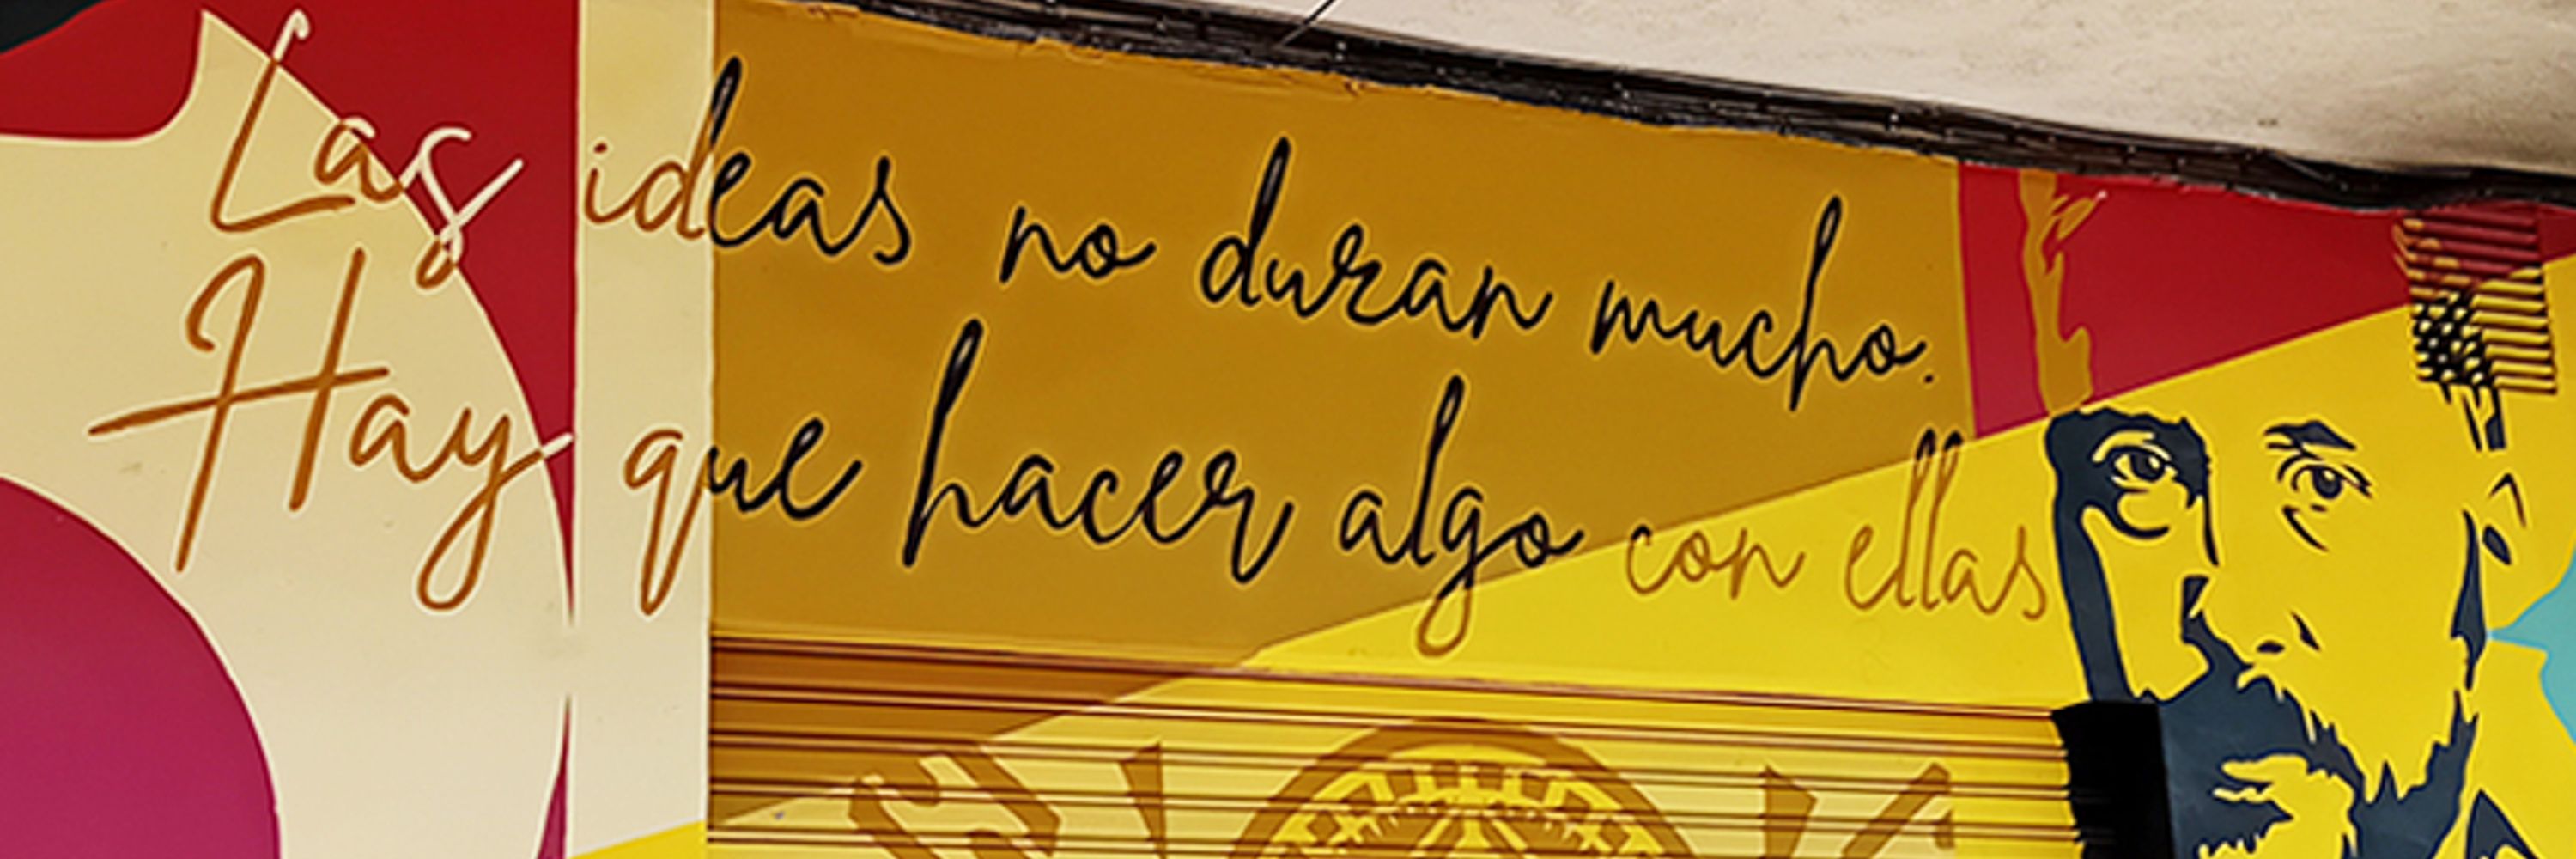 Las ideas no duran mucho.
Hay que hacer algo con ellas